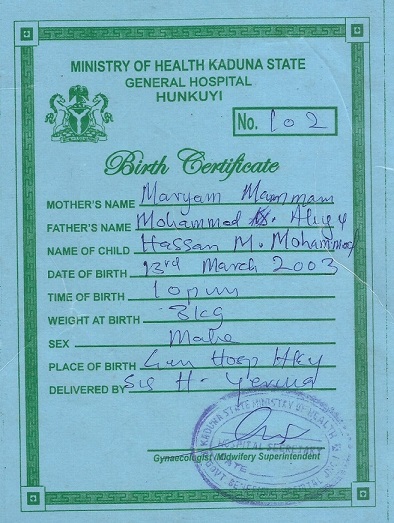 MINISTRY OF HEALTH KADUNA STATE
GENERAL HOSPITAL
HUNKUYI
No. 102
Birth Certificate
MOTHER'S NAME Maryam Mammam
FATHER'S NAME Mohammed Aliyu
NAME OF CHILD Hassan M. Mohammed
DATE OF BIRTH 13rd March 2003
TIME OF BIRTH 10pm
WEIGHT AT BIRTH 3kg
SEX Male
PLACE OF BIRTH Gen Hosp Hky
DELIVERED BY Sis H.
KADUNA STATE MINISTRY OF HEALTH
HOSPITAL SECRETARY
DATE
Gynaecologist/Midwifery Superintendent